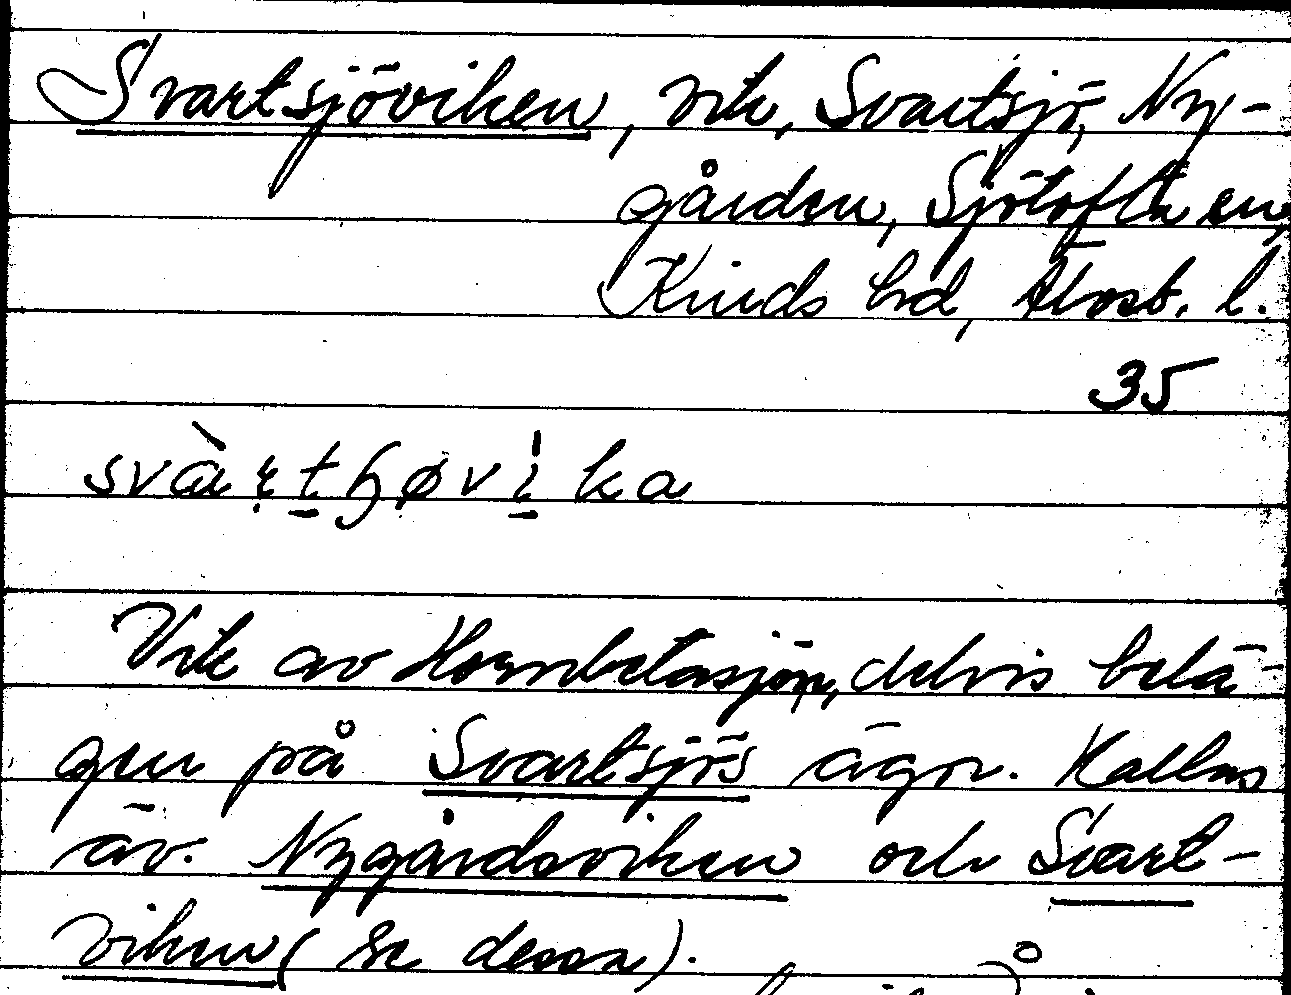 Svartsjöviken, vik, Svartsjö, Ny-
gården, Sjötofta sn,
Kinds hd, Älvsb. l.
35
Vik av Hornbetasjön, delvis belä-
gen på Svartsjös ägor. Kallas
äv. Nygårdsviken och Svart-
viken (se dessa).